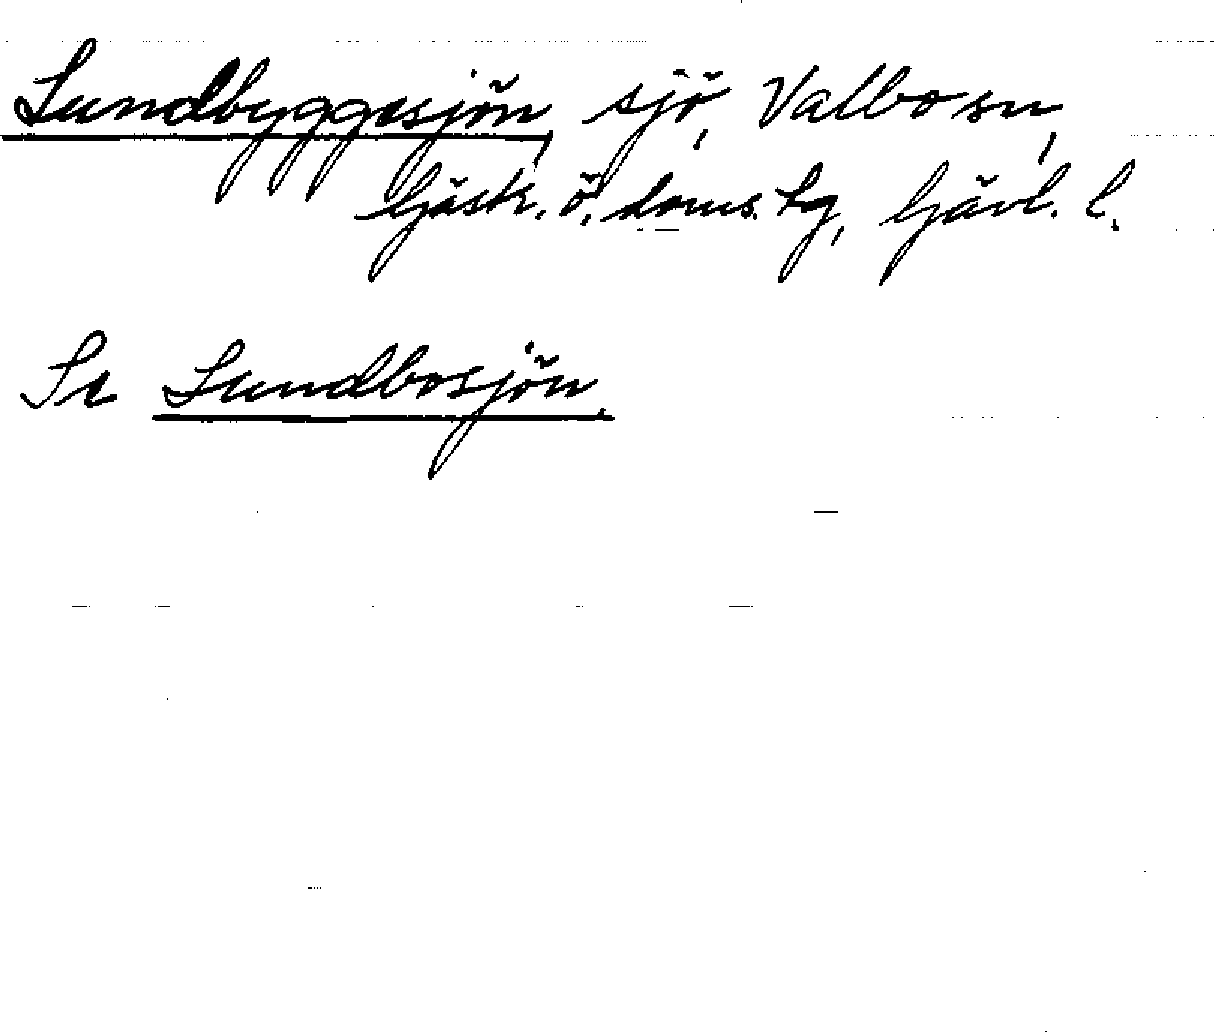 Lundbyggesjön, sjö, Valbo sn,
Gästr. ö. doms. tg, Gävl. l.
Se Lundbosjön.